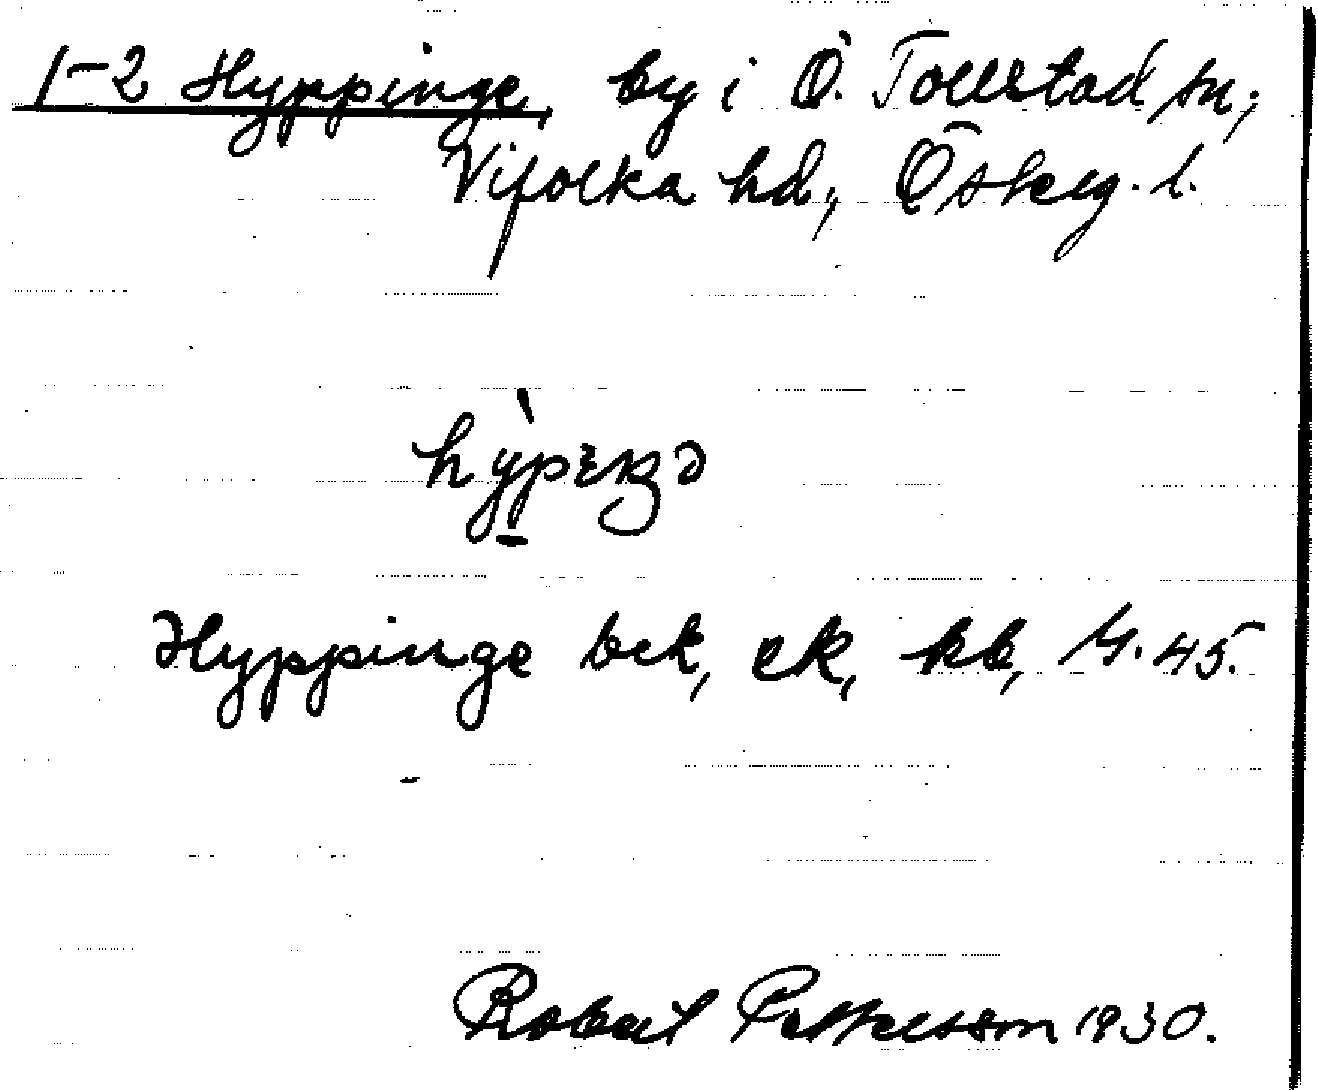 1-2 Hyppinge, by i Ö. Tollstad sn;
Vifolka hd, Östeg. l.
Hyppinge bck, ek, kb, 45.
Robert Pettersson 1930.